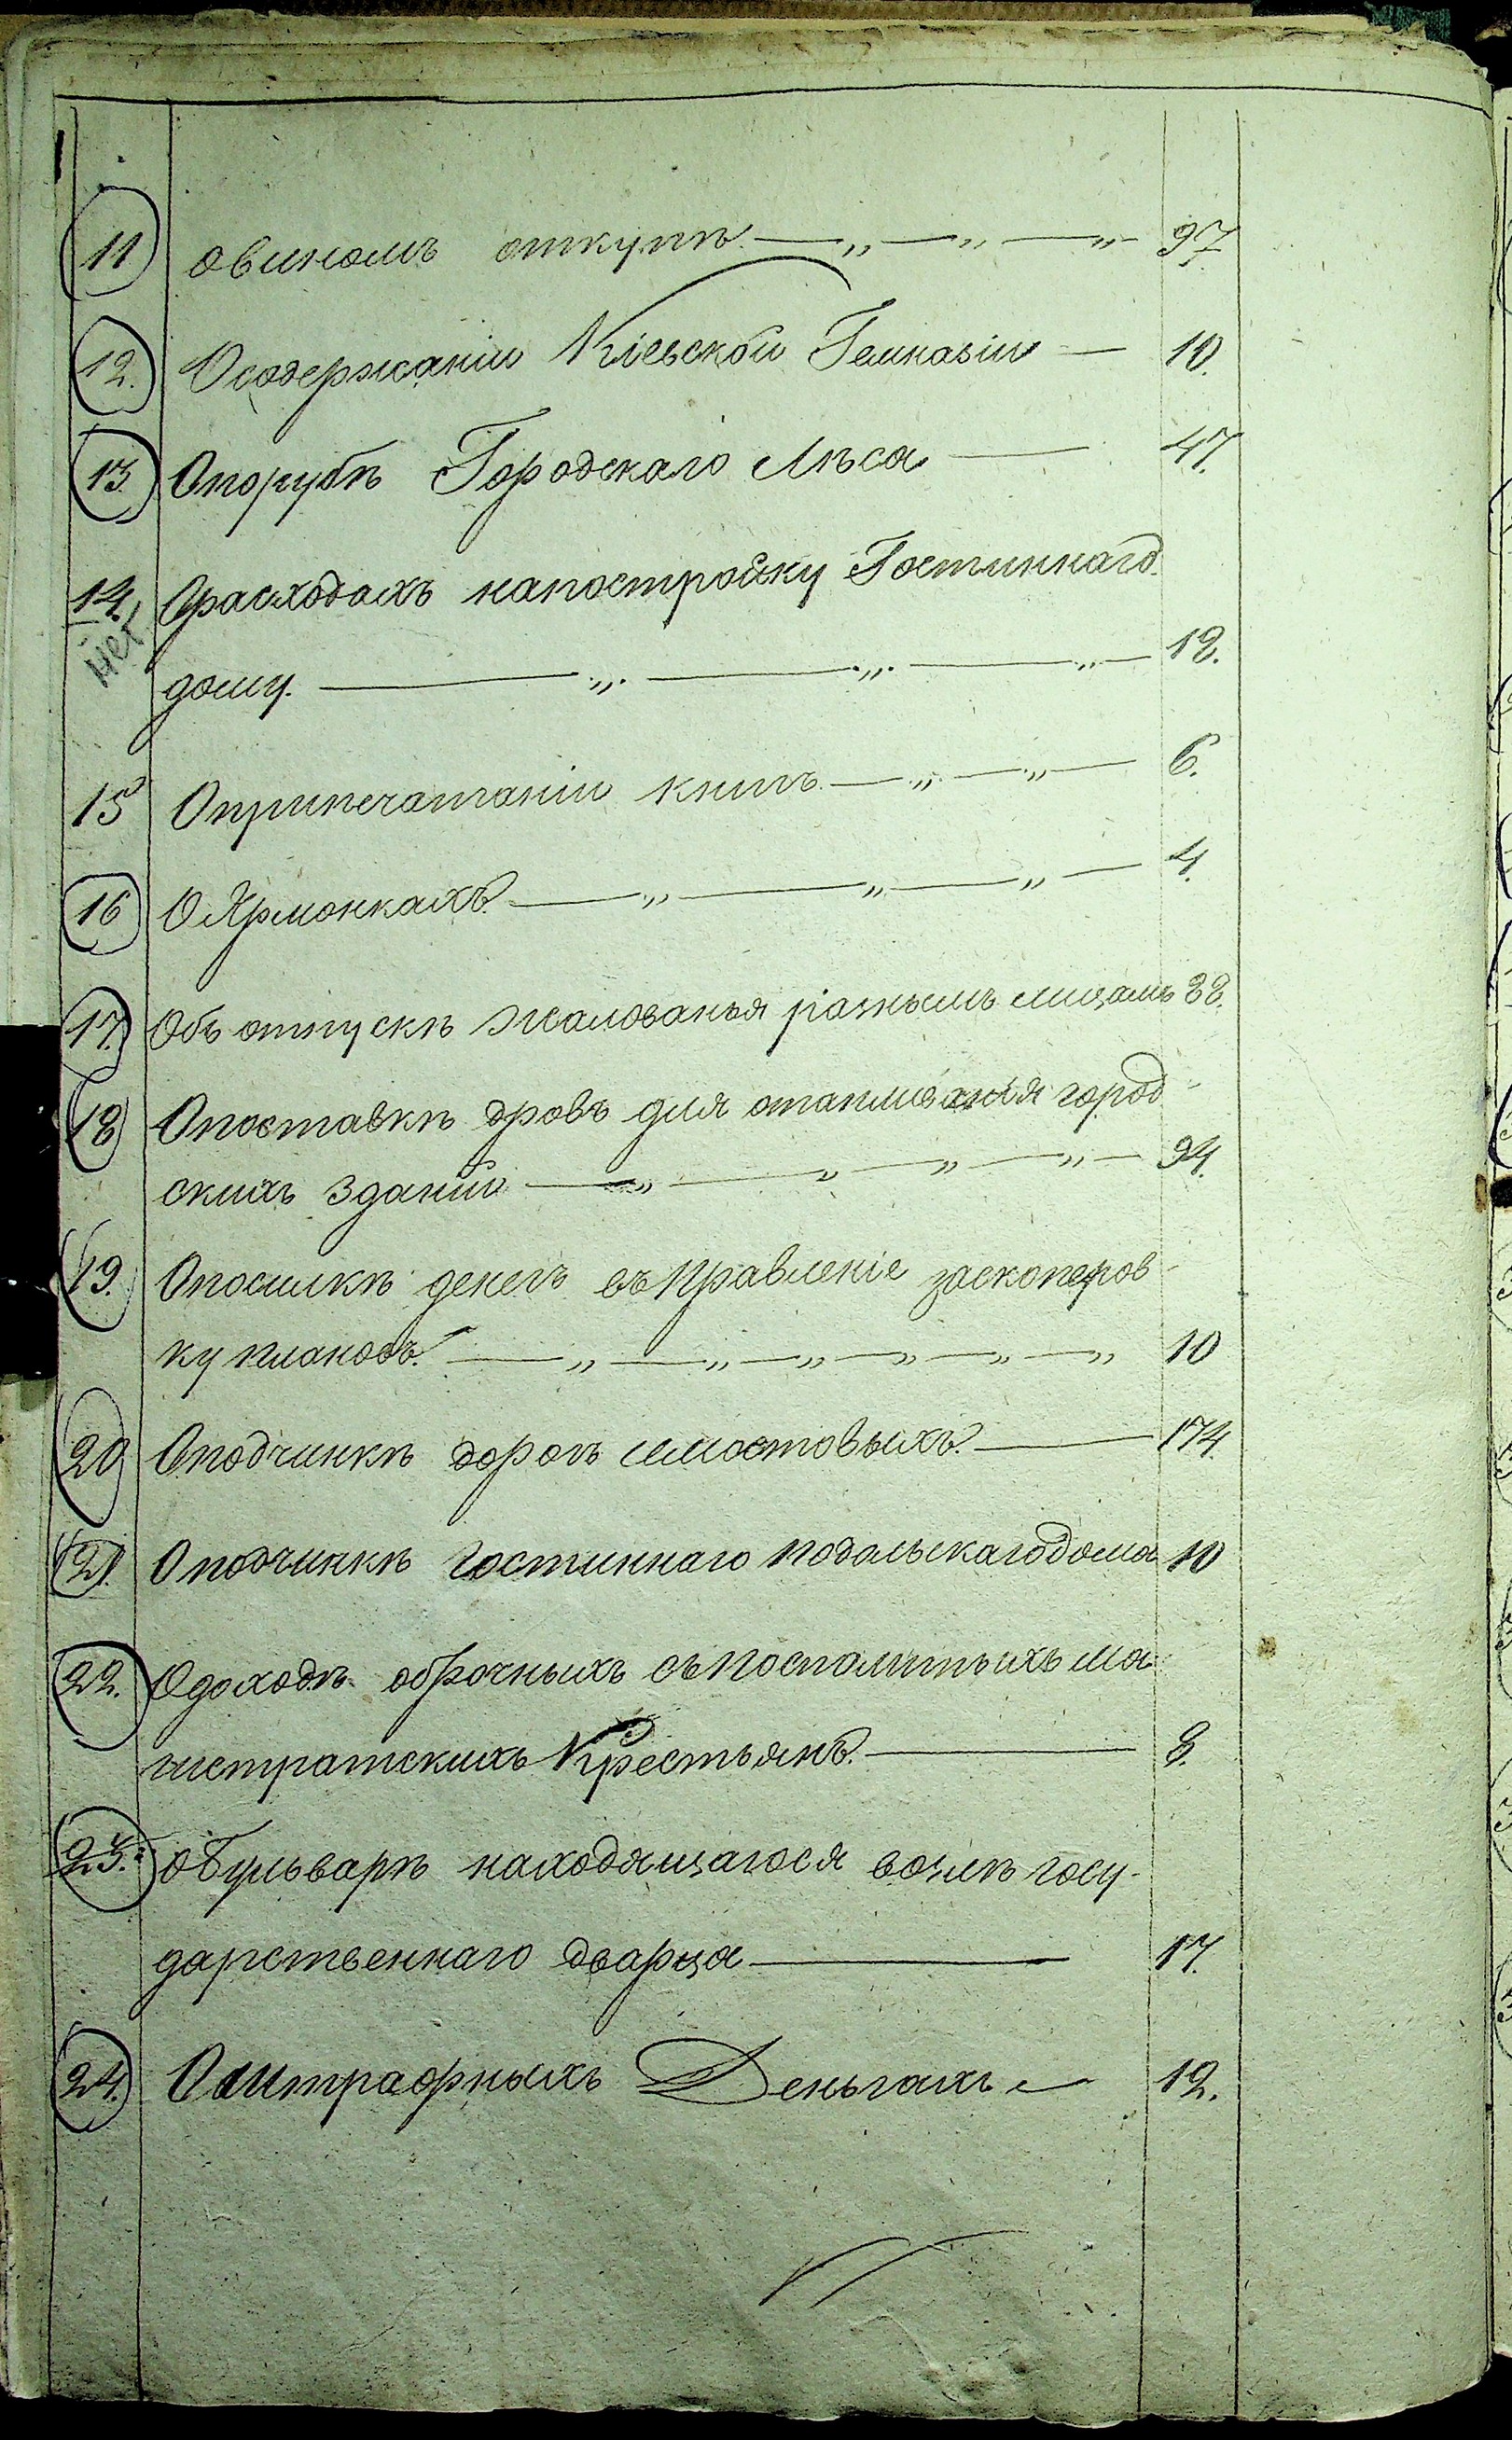 11 овиномъ откупѣ. — „ — „ — „ — 97.
12. Осодержаніи Кіевской Гемназіи — 10.
13. Опорубѣ Городскаго Лѣса — 47.
14. Орасходахъ напостройку Гостиннаго
нет
дому. — „. — „. — „ — 12.
15 Оприпечатаніи книгъ — „ — „ — 6.
16 ОЯрмонкахъ. — „ — „ — „ — 4.
17. Объ отпускѣ жалованья разнымъ лицамъ 88.
18 Опоставкѣ дровъ для отапливанія город-
скихъ зданій — „ — „ — „ — „ — 94.
19. Опосилкѣ денегъ въ Правленіе заскопиров-
ку плановъ. — „ — „ — „ — „ — „ — „ 10
20 Оподчинкѣ дорогъ имостовыхъ. — 174.
21. Оподчинкѣ гостиннаго подольскагодома 10
22. Одоходѣ оброчныхъ съпосполитыхъ ма-
гистратскихъ Крестьянъ. — 8.
23. оБульварѣ находящагося возлѣ госу-
дарственнаго дварца — 17.
24. Оштрафныхъ Деньгахъ — 12.